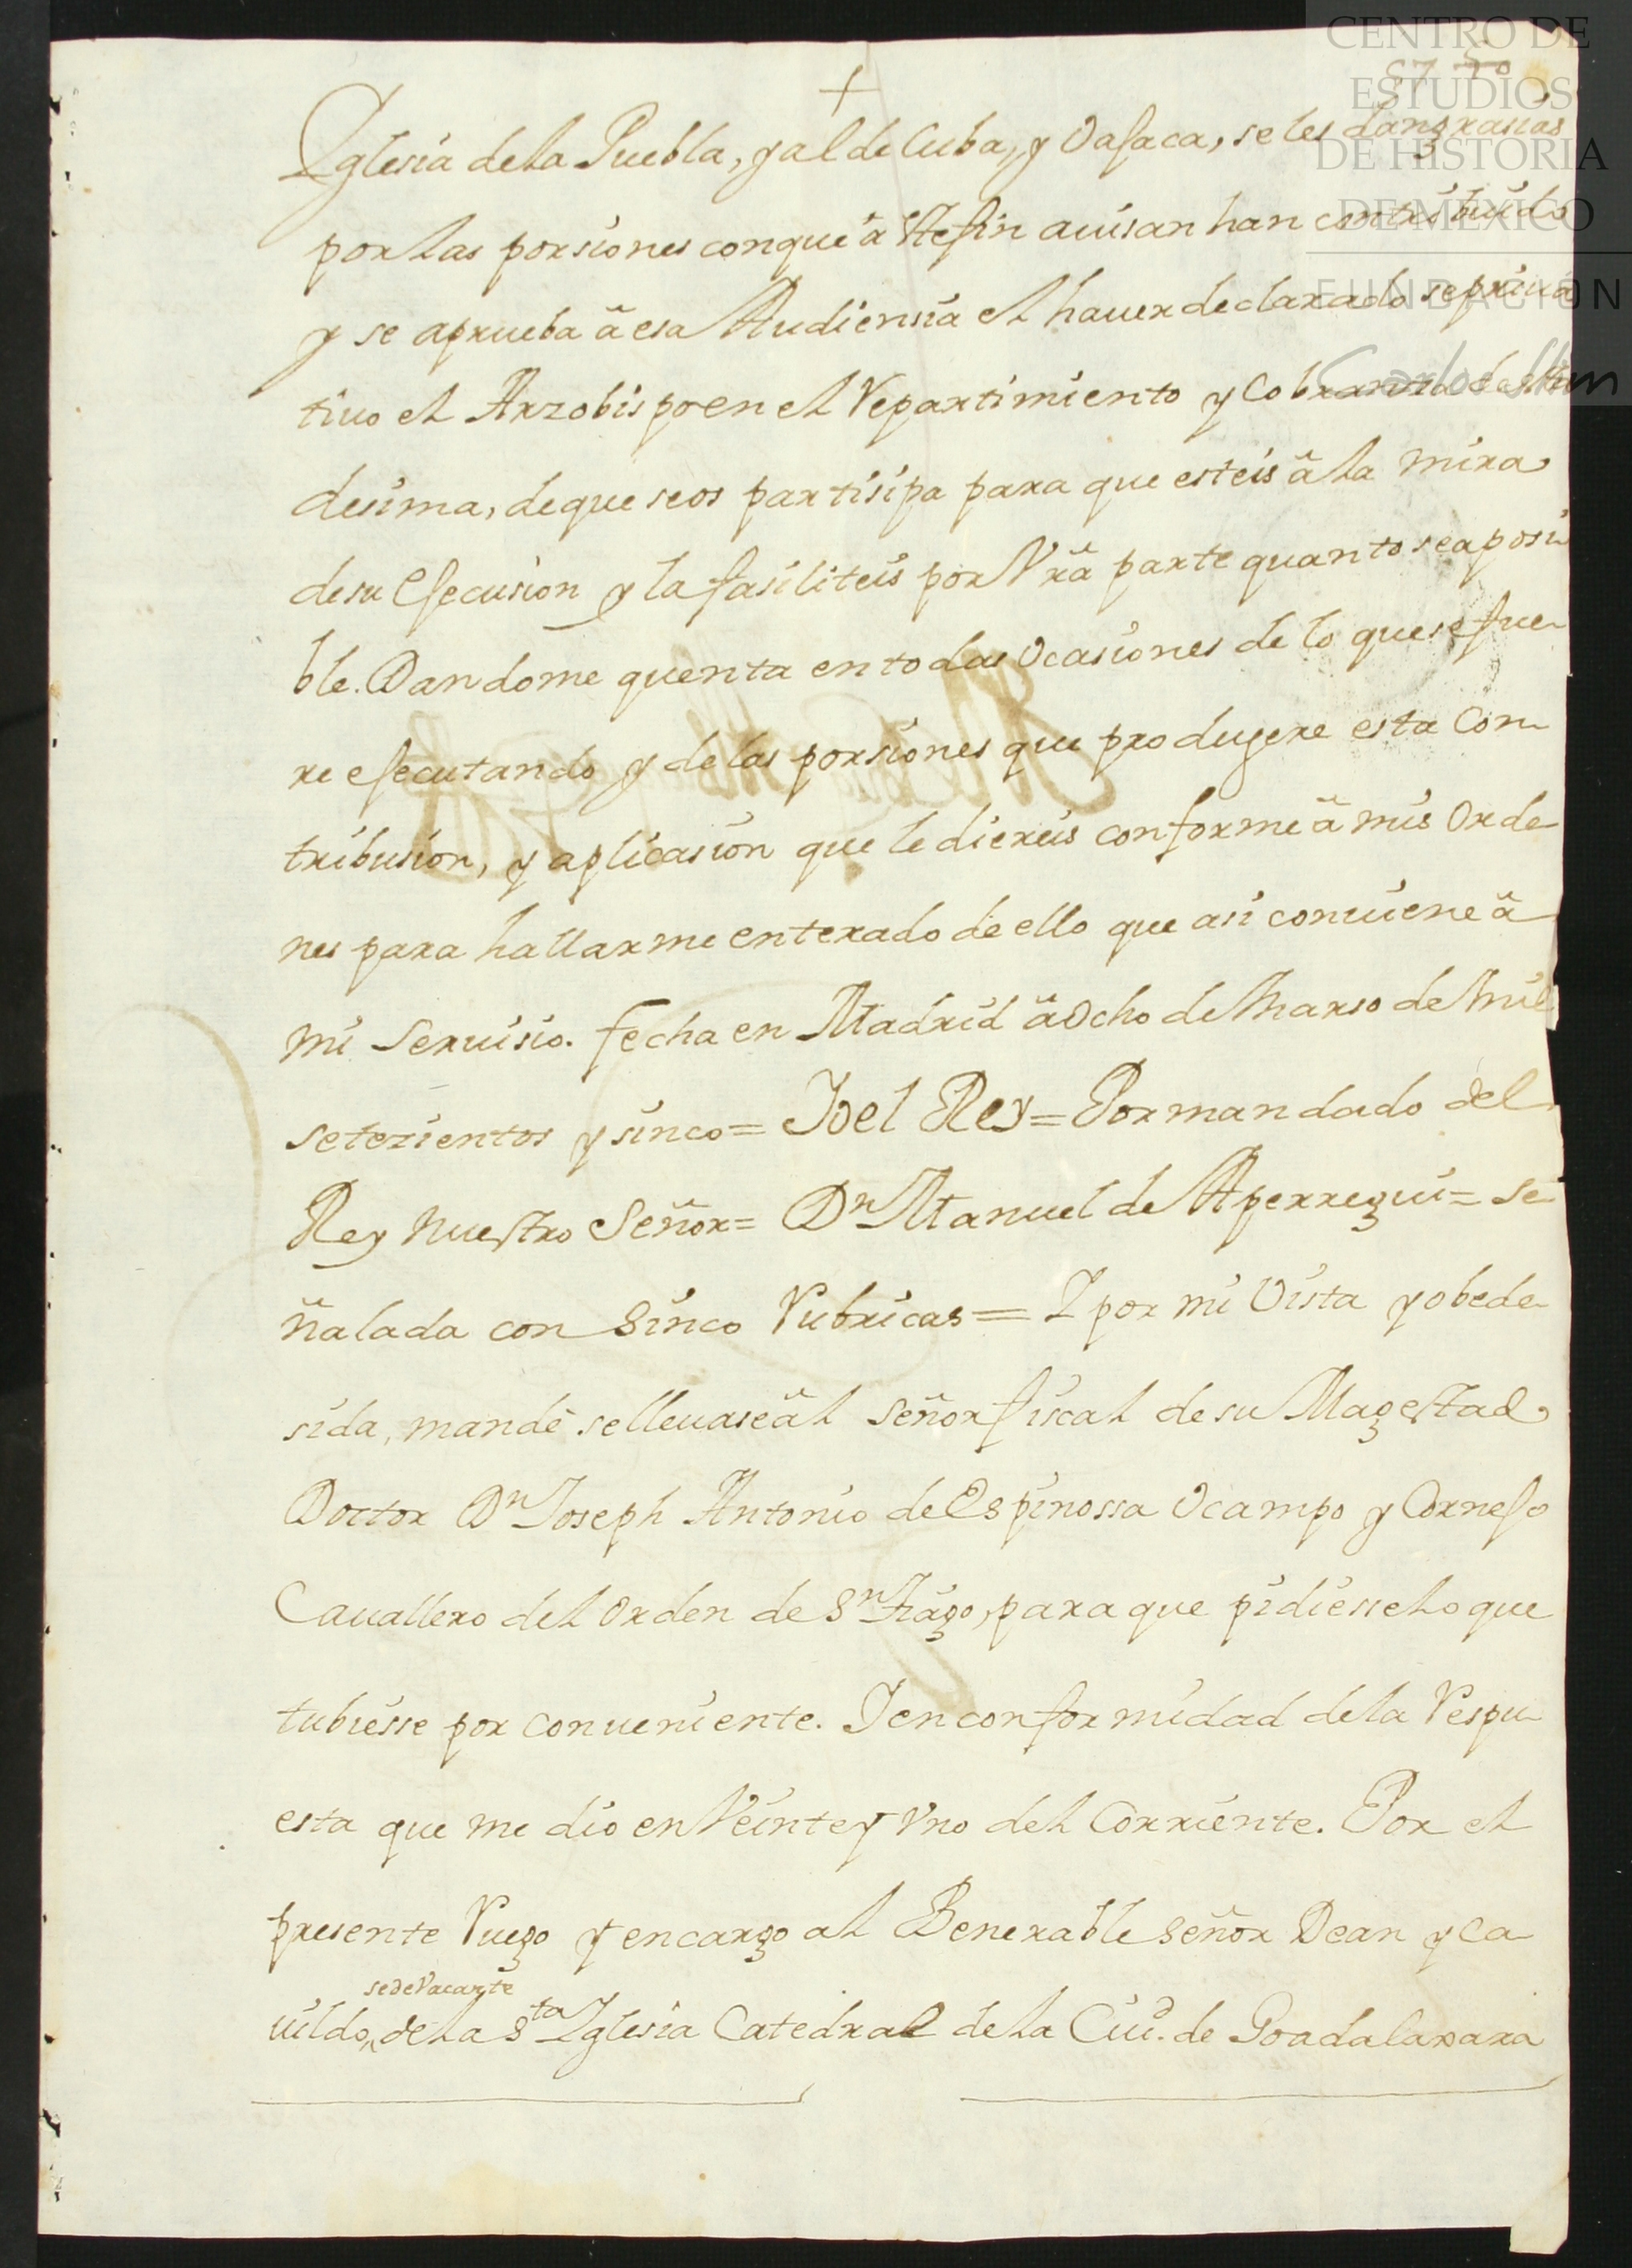 CENTRO DE
ESTUDIOS
DE HISTORIA
DE MÉXICO
FUNDACIÓN
Carlos Slim
+
Yglesia de la Puebla, y al de Cuba, y Oajaca, se les dan grasias
por las porsiones conque â este fin auisan han contribuido
y se aprueba â esa Audiensia el hauer declarado se priua
tiuo el Arzobispo en el Repartimiento y Cobranza de esta
desima, de que se os partisipa para que esteis â la mira
de su Ejecusion y la fasiliteis por Vrâ parte quanto sea posi
ble. Dandome quenta en todas Ocasiones de lo que se fue
re ejecutando y de las porsiones que produgere esta Con
tribusion, y aplicasion que le diereis conforme â mis Orde
nes para hallarme enterado de ello que asi conuiene â
mi Seruisio. fecha en Madrid â Ocho de Marso de Mil
setezientos y sinco = Yo el Rey = Por mandado del
Rey nuestro Señor = Dn Manuel de Aperregui = Se
ñalada con Sinco Rubricas = Y por mi Vista y obede
sida, mandè se lleuase âl Señor fiscal de su Magestad
Doctor Dn Joseph Antonio de Espinossa Ocampo y Cornejo
Cauallero del Orden de Sn Tiago, para que pidiesse lo que
tubiesse por conueniente. Y en conformidad de la Respu
esta que me dio en Veinte y Vno del Corriente. Por el
presente Ruego y encargo al Benerable Señor Dean y Ca
sede Vacante
uildo, de la Sta Yglesia Catedral de la Ciud. de Goadalaxara